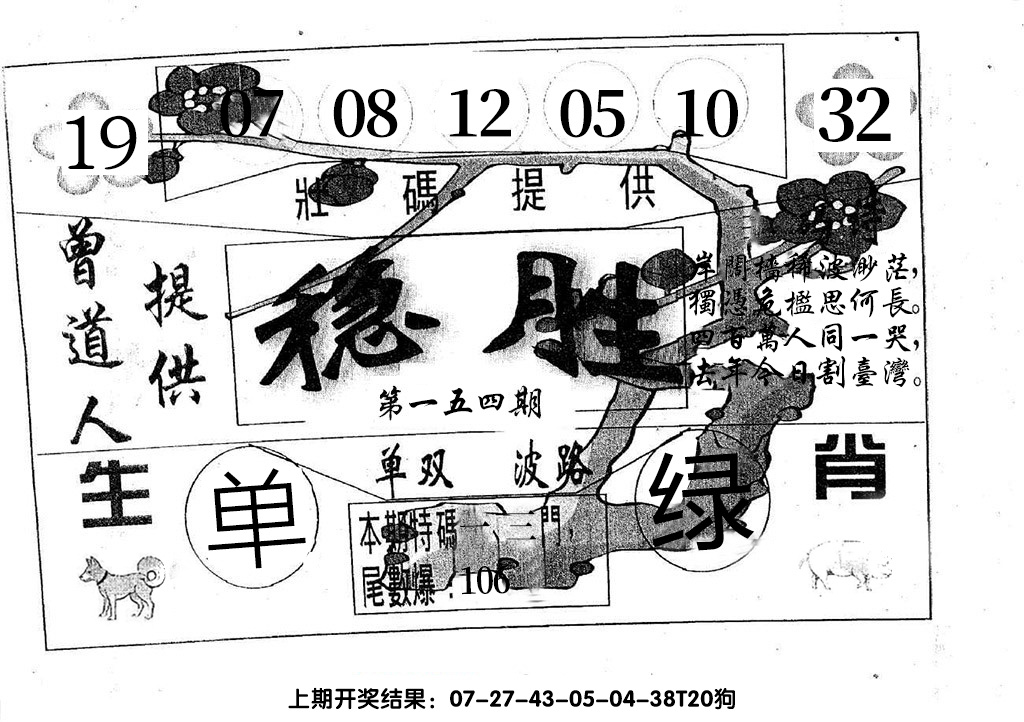 19 07 08 12 05 10 32
壯碼提供
曾道人
提供
穩勝
第一五四期
岸闊檣稀波渺茫,
獨憑危檻思何長。
四百萬人同一哭,
去年今日割臺灣。
单双 波路
生肖
单
绿
本期特碼一、三門,
尾數爆:106
上期开奖结果:07-27-43-05-04-38T20狗